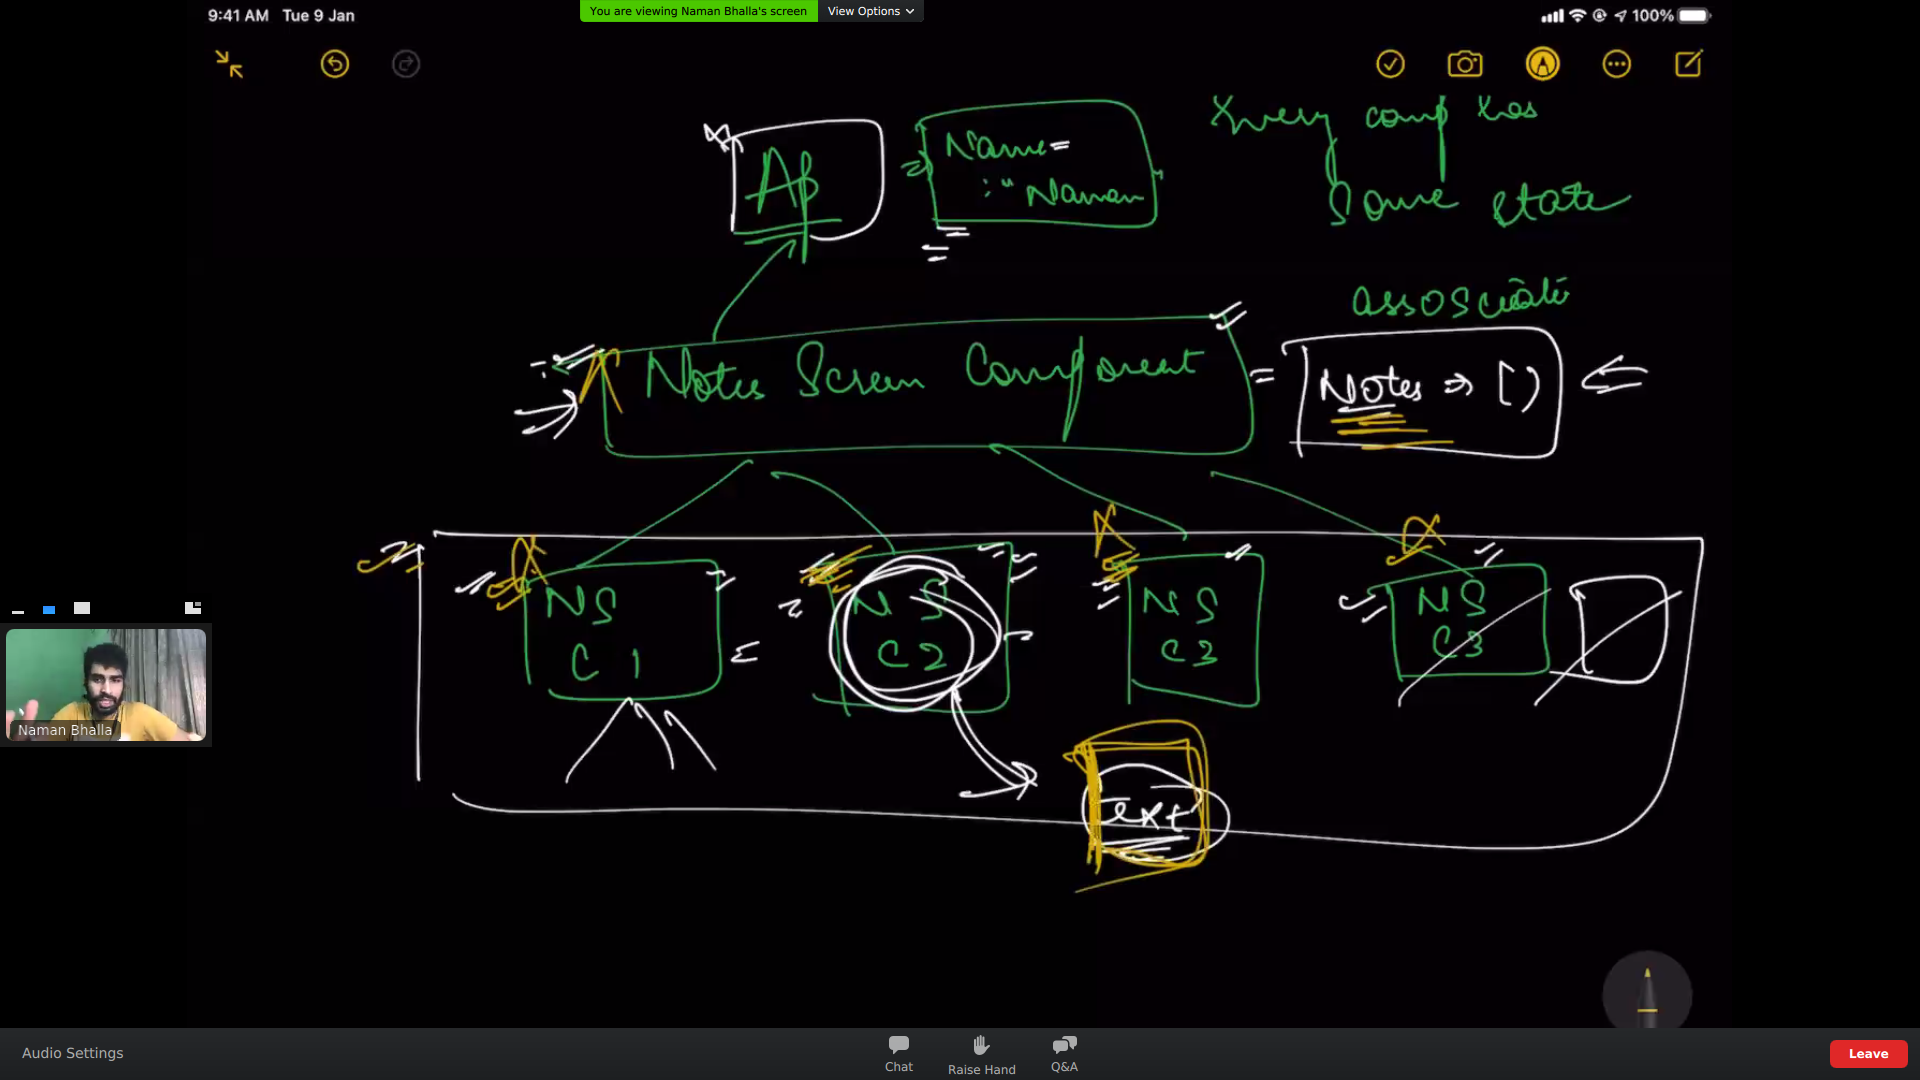 9:41 AM Tue 9 Jan
You are viewing Naman Bhalla's screen View Options
100%
Every comp has
Some state
Ap
Name =
: "Naman"
Notes Screen Component
=
Notes => []
NS
C1
NS
C2
NS
C3
NS
C3
Text
Naman Bhalla
Audio Settings
Chat
Raise Hand
Q&A
Leave